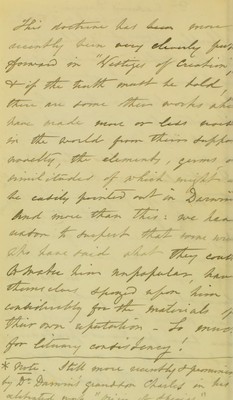 This doctrine has been more
recently been very cleverly put
forward on "Vestiges of Creation,"
& if the truth must be told,
there are some other works which
have made more or less noise
in the world from their suppo
novelty, the elements, germs or
similitudes of which might
be easily pointed out in Darwin
And more than this: we have
reason to suspect that some
who have said what they could
to make him unpopular, have
themselves sponged upon him
considerably for the materials of
their own reputation - So much
for literary consistency!
* Note. Still more recently & prominently
by Dr. Darwin's grandson Charles in his
"Origin of Species"